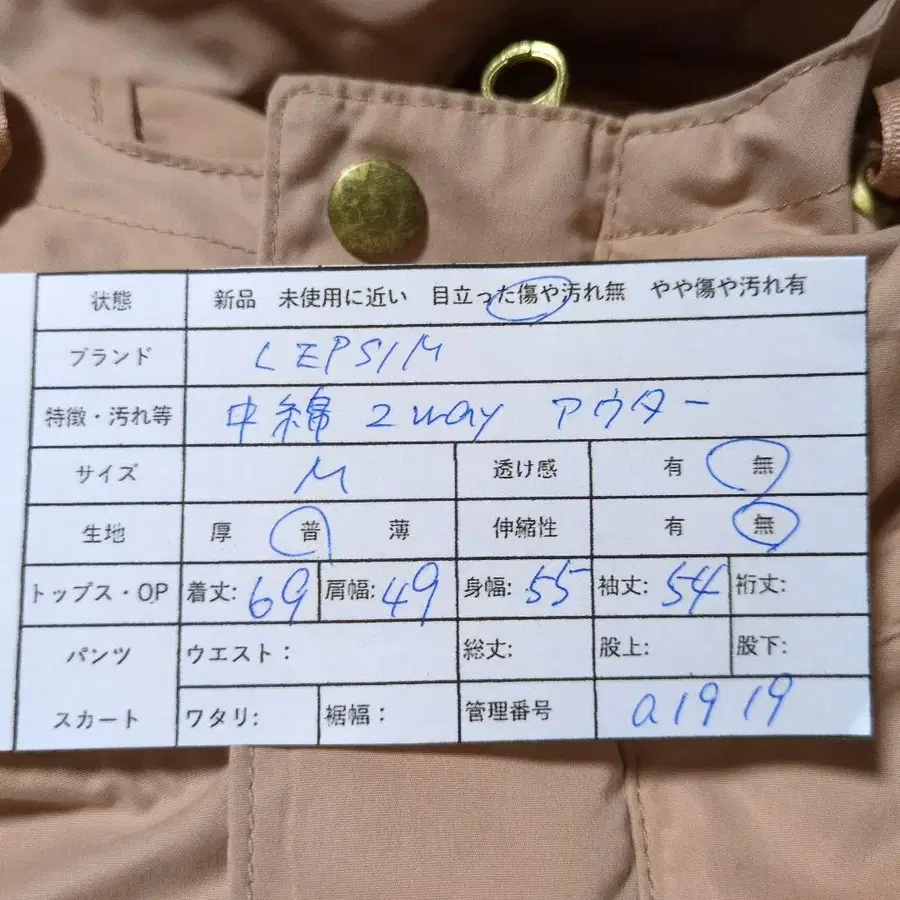 状態 新品 未使用に近い 目立った傷や汚れ無 やや傷や汚れ有
ブランド LEPSIM
特徴・汚れ等 中綿 2way アウター
サイズ M 透け感 有 無
生地 厚 普 薄 伸縮性 有 無
トップス・OP 着丈: 69 肩幅: 49 身幅: 55 袖丈: 54 裄丈:
パンツ ウエスト: 総丈: 股上: 股下:
スカート ワタリ: 裾幅: 管理番号 a1919